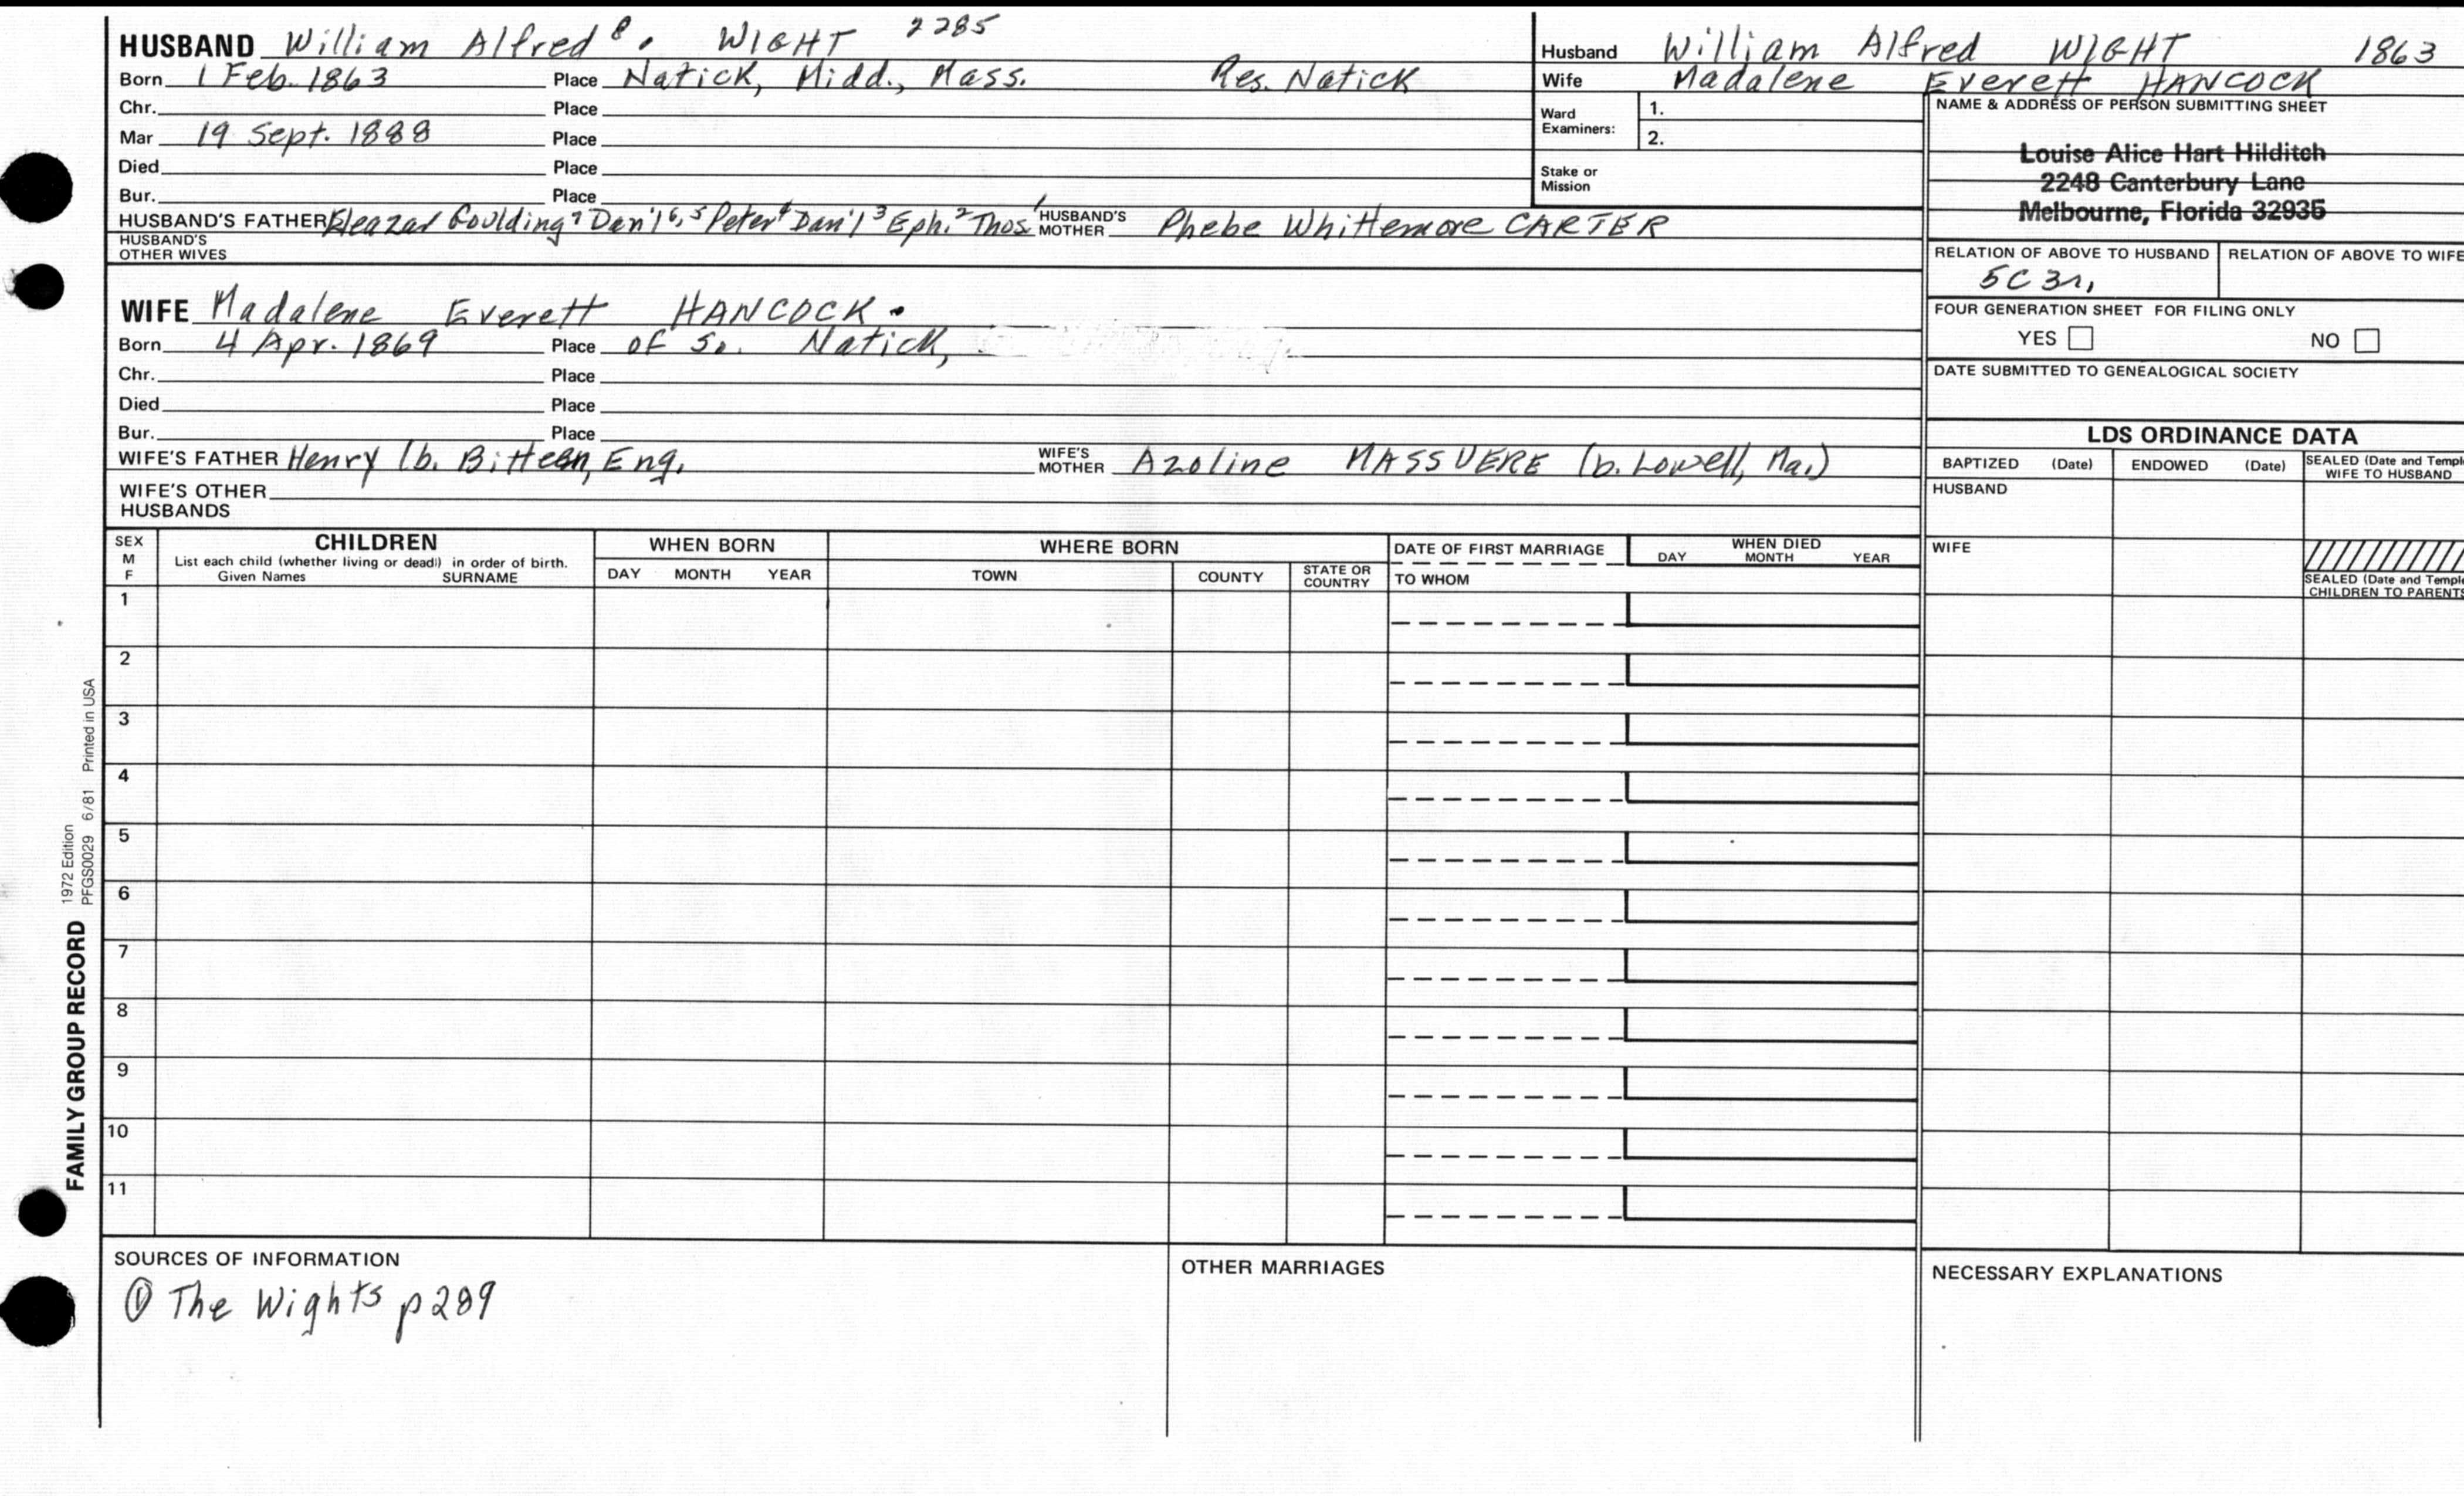 HUSBAND William Alfred 8. WIGHT 2285
Born 1 Feb. 1863 Place Natick, Midd., Mass. Res. Natick
Chr. Place
Mar 19 Sept. 1888 Place
Died Place
Bur. Place
HUSBAND'S FATHER Eleazar Goulding 7 Dan'l 6,5 Peter 4 Dan'l 3 Eph. 2 Thos 1 HUSBAND'S MOTHER Phebe Whittemore CARTER
HUSBAND'S OTHER WIVES
WIFE Madalene Everett HANCOCK.
Born 4 Apr. 1869 Place of So. Natick,
Chr. Place
Died Place
Bur. Place
WIFE'S FATHER Henry (b. Eng. WIFE'S MOTHER Azoline MASSVERE (b. Lowell, Ma.)
WIFE'S OTHER HUSBANDS
Husband William Alfred WIGHT 1863
Wife Madalene Everett HANCOCK
Ward Examiners: 1.
2.
Stake or Mission
NAME & ADDRESS OF PERSON SUBMITTING SHEET
Louise Alice Hart Hilditch
2248 Canterbury Lane
Melbourne, Florida 32935
RELATION OF ABOVE TO HUSBAND RELATION OF ABOVE TO WIFE
5C 3r,
FOUR GENERATION SHEET FOR FILING ONLY
YES NO
DATE SUBMITTED TO GENEALOGICAL SOCIETY
LDS ORDINANCE DATA
BAPTIZED (Date) ENDOWED (Date) SEALED (Date and Temple
WIFE TO HUSBAND
HUSBAND
WIFE
SEALED (Date and Temple
CHILDREN TO PARENTS
SEX
M
F
CHILDREN
List each child (whether living or dead) in order of birth.
Given Names SURNAME
WHEN BORN
DAY MONTH YEAR
WHERE BORN
TOWN COUNTY STATE OR COUNTRY
DATE OF FIRST MARRIAGE
TO WHOM
WHEN DIED
DAY MONTH YEAR
1
2
3
4
5
6
7
8
9
10
11
SOURCES OF INFORMATION
① The Wights p289
OTHER MARRIAGES
NECESSARY EXPLANATIONS
FAMILY GROUP RECORD
1972 Edition
PFGS0029 6/81 Printed in USA